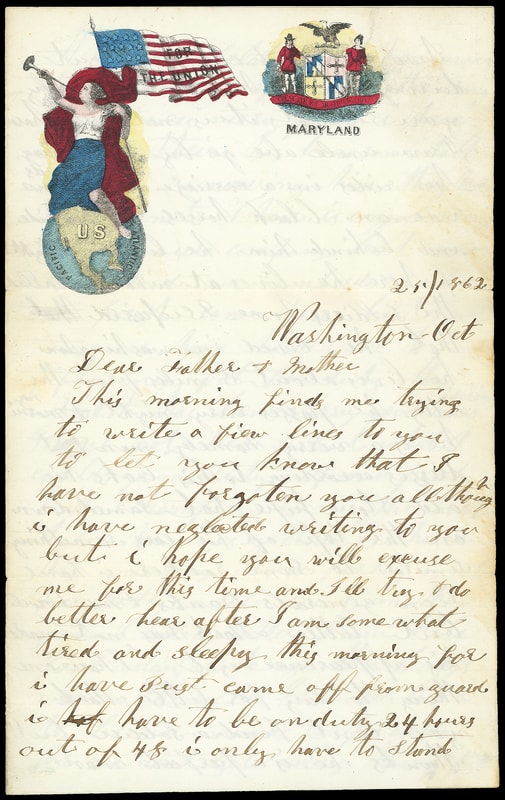 FOR
THE UNION
MARYLAND
US
PACIFIC
ATLANTIC
25/1862.
Washington Oct
Dear Father & Mother
This morning finds me trying
to write a fiew lines to you
to let you know that I
have not forgoten you all though
i have neglected writing to you
but i hope you will excuse
me for this time and I'll try & do
better hear after I am some what
tired and sleepy this morning for
i have Just came off from guard
i have to be on duty 24 hours
out of 48 i only have to stand